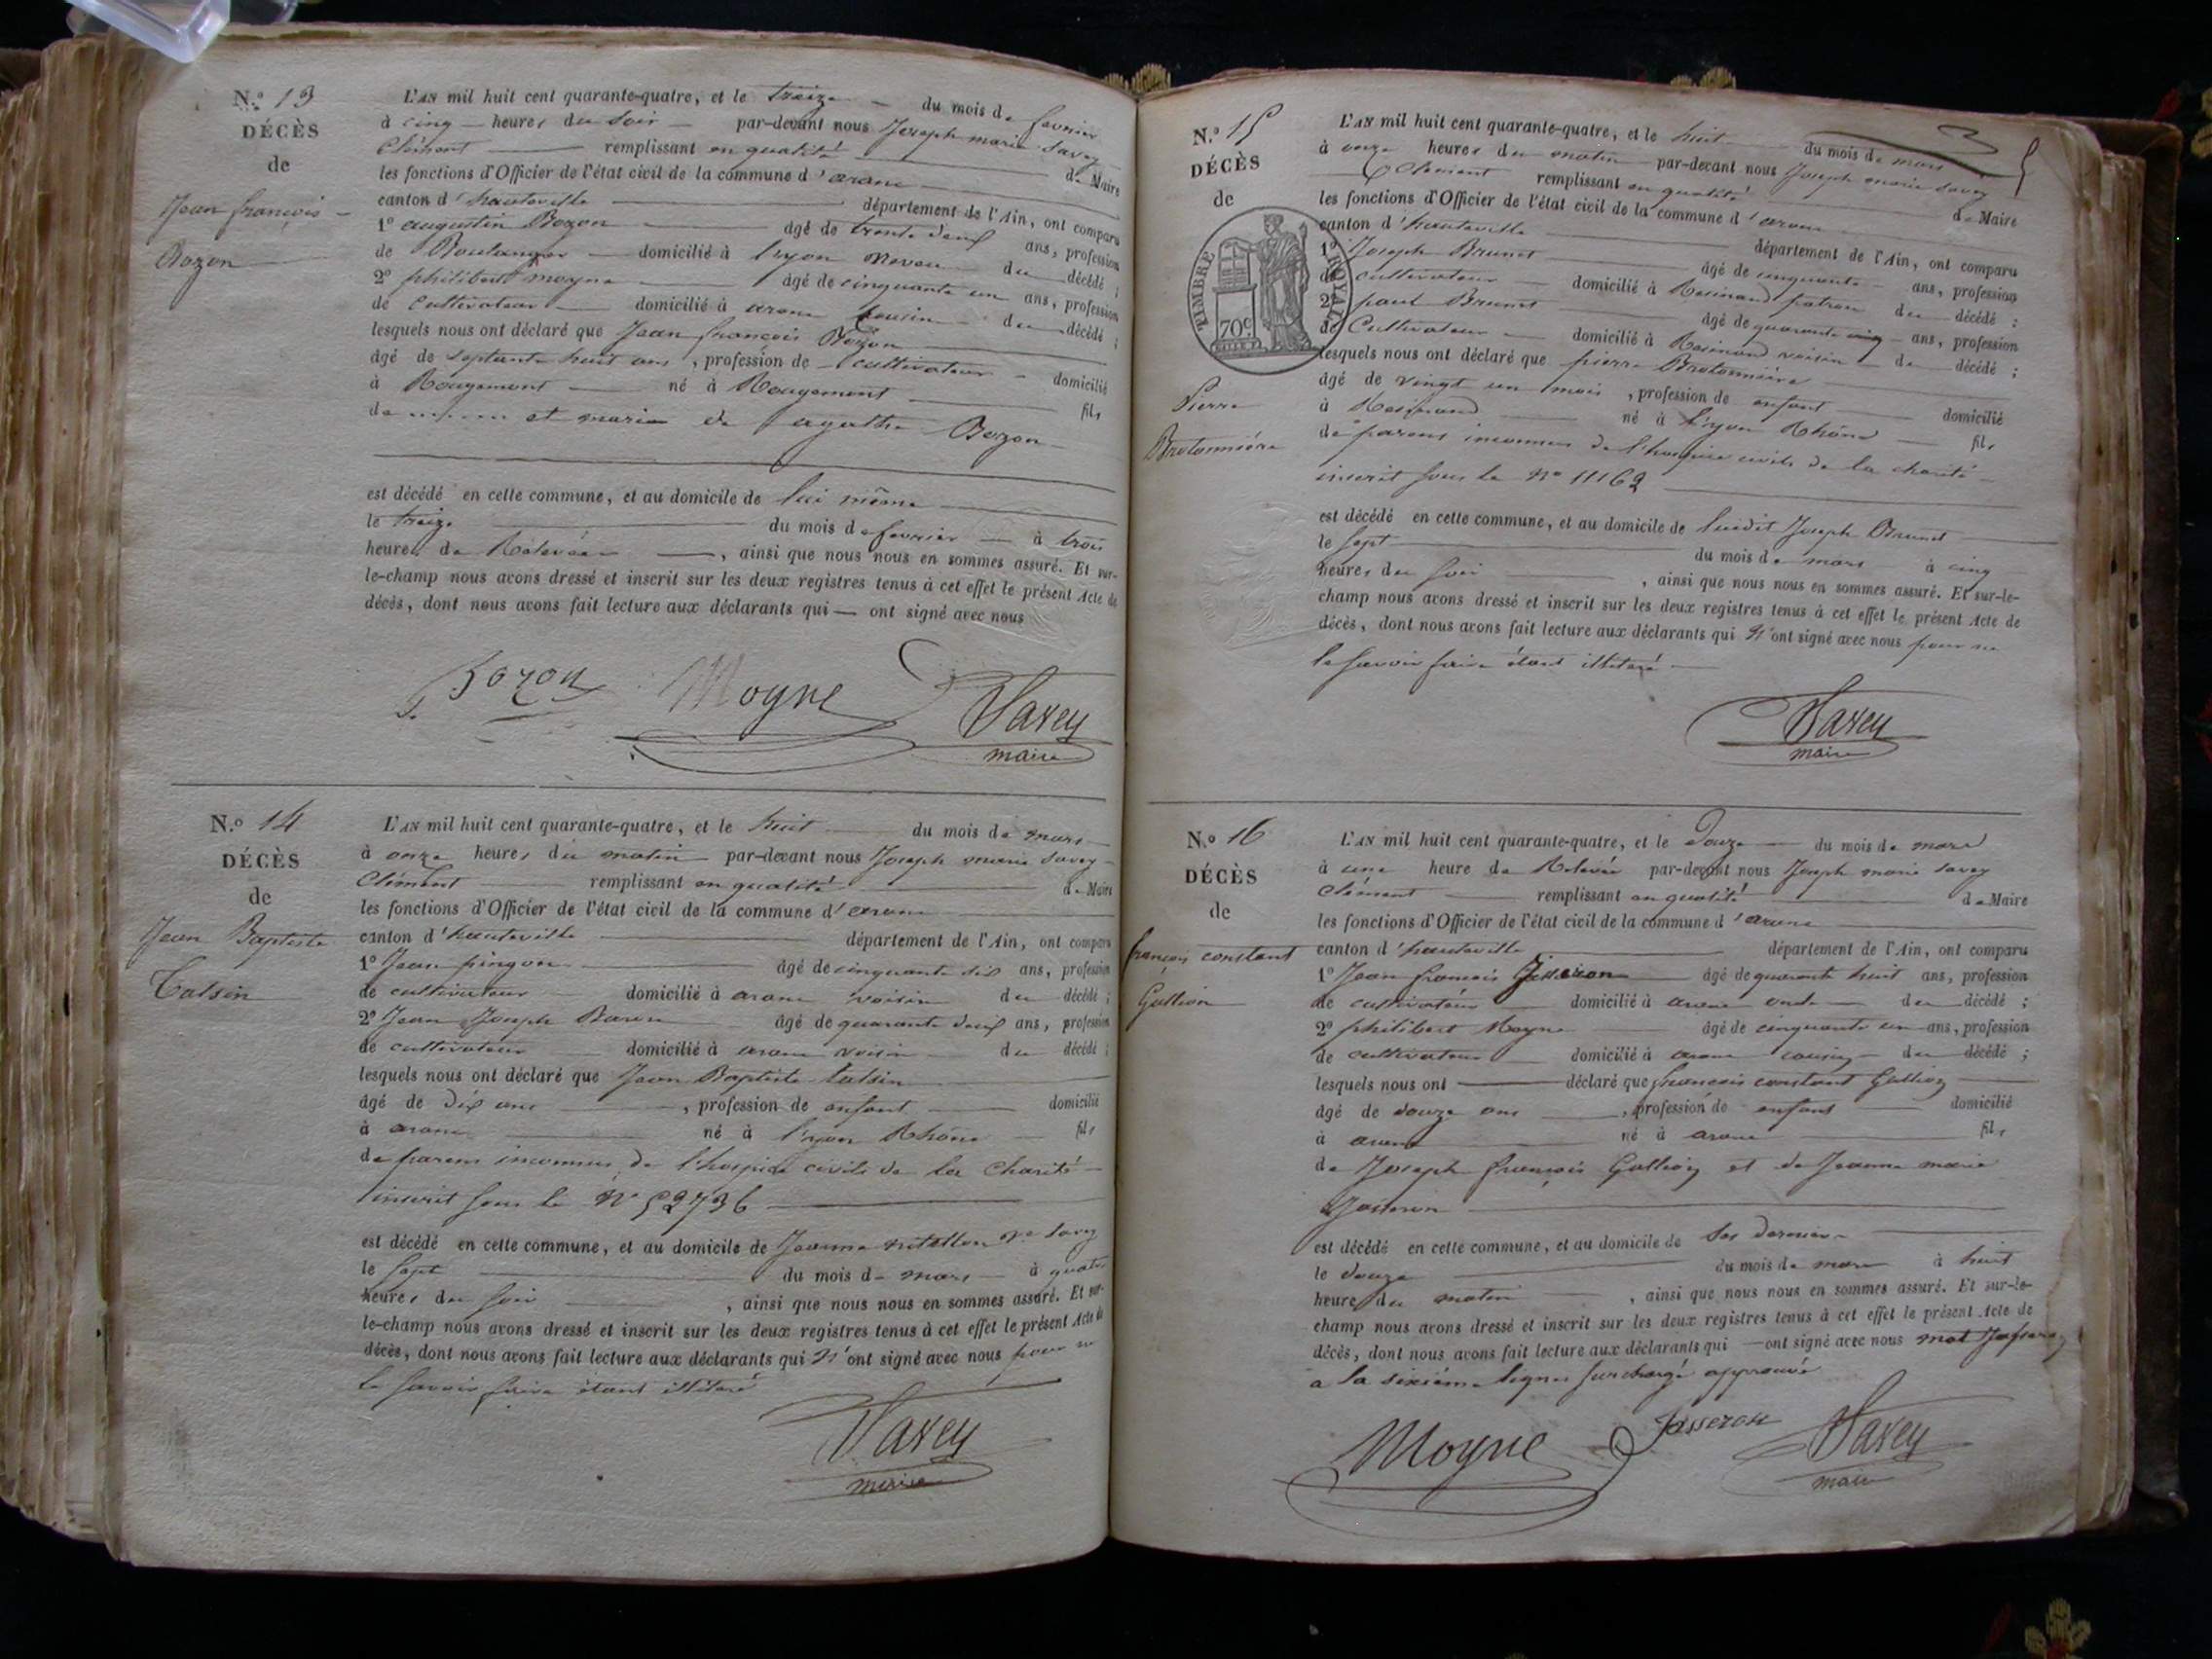 N.o 13
DÉCÈS
de
Jean françois
Bozon
L'AN mil huit cent quarante-quatre, et le treize du mois de fevrier
à cinq heures du soir par-devant nous Joseph marie Savey
Clément remplissant en qualité de Maire
les fonctions d'Officier de l'état civil de la commune d'aranc
canton d'hauteville département de l'Ain, ont comparu
1o augustin Bozon âgé de trente deux ans, profession
de Boulanger domicilié à lyon neveu du décédé ;
2o philibert moyne âgé de cinquante un ans, profession
de cultivateur domicilié à aranc cousin du décédé ;
lesquels nous ont déclaré que Jean françois Bozon
âgé de septante huit ans, profession de cultivateur domicilié
à Rougemont né à Rougemont fils
de et marie de agathe Bozon
est décédé en cette commune, et au domicile de lui même
le treize du mois de fevrier à trois
heures de Relevée, ainsi que nous nous en sommes assuré. Et sur-
le-champ nous avons dressé et inscrit sur les deux registres tenus à cet effet le présent Acte de
décès, dont nous avons fait lecture aux déclarants qui — ont signé avec nous
Bozon Moyne Savey
maire
N.o 14
DÉCÈS
de
Jean Baptiste
Talsin
L'AN mil huit cent quarante-quatre, et le huit du mois de mars
à onze heures du matin par-devant nous Joseph marie Savey
Clément remplissant en qualité de Maire
les fonctions d'Officier de l'état civil de la commune d'aranc
canton d'hauteville département de l'Ain, ont comparu
1o Jean pingon âgé de cinquante six ans, profession
de cultivateur domicilié à aranc voisin du décédé ;
2o Jean Joseph Baron âgé de quarante deux ans, profession
de cultivateur domicilié à aranc voisin du décédé ;
lesquels nous ont déclaré que Jean Baptiste talsin
âgé de dix ans, profession de enfant domicilié
à aranc né à lyon Rhône fils
de parens inconnus de l'hospice civils de la Charité
inscrit sous le No 52736
est décédé en cette commune, et au domicile de Jeanne Ve Savey
le sept du mois de mars à quatre
heures du soir, ainsi que nous nous en sommes assuré. Et sur-
le-champ nous avons dressé et inscrit sur les deux registres tenus à cet effet le présent Acte de
décès, dont nous avons fait lecture aux déclarants qui n'ont signé avec nous pour ne
le savoir faire étant illitaré
Savey
maire
N.o 15
DÉCÈS
de
TIMBRE ROYAL
70c
Pierre
Bretonnière
L'AN mil huit cent quarante-quatre, et le huit du mois de mars
à onze heures du matin par-devant nous Joseph marie Savey
Clément remplissant en qualité de Maire
les fonctions d'Officier de l'état civil de la commune d'aranc
canton d'hauteville département de l'Ain, ont comparu
1o Joseph Brunet âgé de cinquante ans, profession
de cultivateur domicilié à Resinand patron du décédé ;
2o paul Brunet âgé de quarante cinq ans, profession
de Cultivateur domicilié à Resinand voisin du décédé ;
lesquels nous ont déclaré que pierre Bretonnière
âgé de vingt un mois, profession de enfant domicilié
à Resinand né à lyon Rhône fils
de parens inconnus de l'hospice civils de la charité
inscrit sous le no 11162
est décédé en cette commune, et au domicile de ludit Joseph Brunet
le sept du mois de mars à cinq
heures du soir, ainsi que nous nous en sommes assuré. Et sur-le-
champ nous avons dressé et inscrit sur les deux registres tenus à cet effet le présent Acte de
décès, dont nous avons fait lecture aux déclarants qui n'ont signé avec nous pour ne
le savoir faire étant illitaré
Savey
maire
N.o 16
DÉCÈS
de
françois constant
Gallion
L'AN mil huit cent quarante-quatre, et le Douze du mois de mars
à une heure de Relevée par-devant nous Joseph marie Savey
Clément remplissant en qualité de Maire
les fonctions d'Officier de l'état civil de la commune d'aranc
canton d'hauteville département de l'Ain, ont comparu
1o Jean francois Jasseron âgé de quarante huit ans, profession
de cultivateur domicilié à aranc oncle du décédé ;
2o philibert Moyne âgé de cinquante un ans, profession
de cultivateur domicilié à aranc cousin du décédé ;
lesquels nous ont déclaré que françois constant Gallion
âgé de douze ans, profession de enfant domicilié
à aranc né à aranc fils
de Joseph françois Gallion et de Jeanne marie
Jasseron
est décédé en cette commune, et au domicile de ses derniers
le douze du mois de mars à huit
heures du matin, ainsi que nous nous en sommes assuré. Et sur-le-
champ nous avons dressé et inscrit sur les deux registres tenus à cet effet le présent Acte de
décès, dont nous avons fait lecture aux déclarants qui — ont signé avec nous mot Jasseron
a la sixième lignes surchargé approuvé
Moyne Jasseron Savey
maire